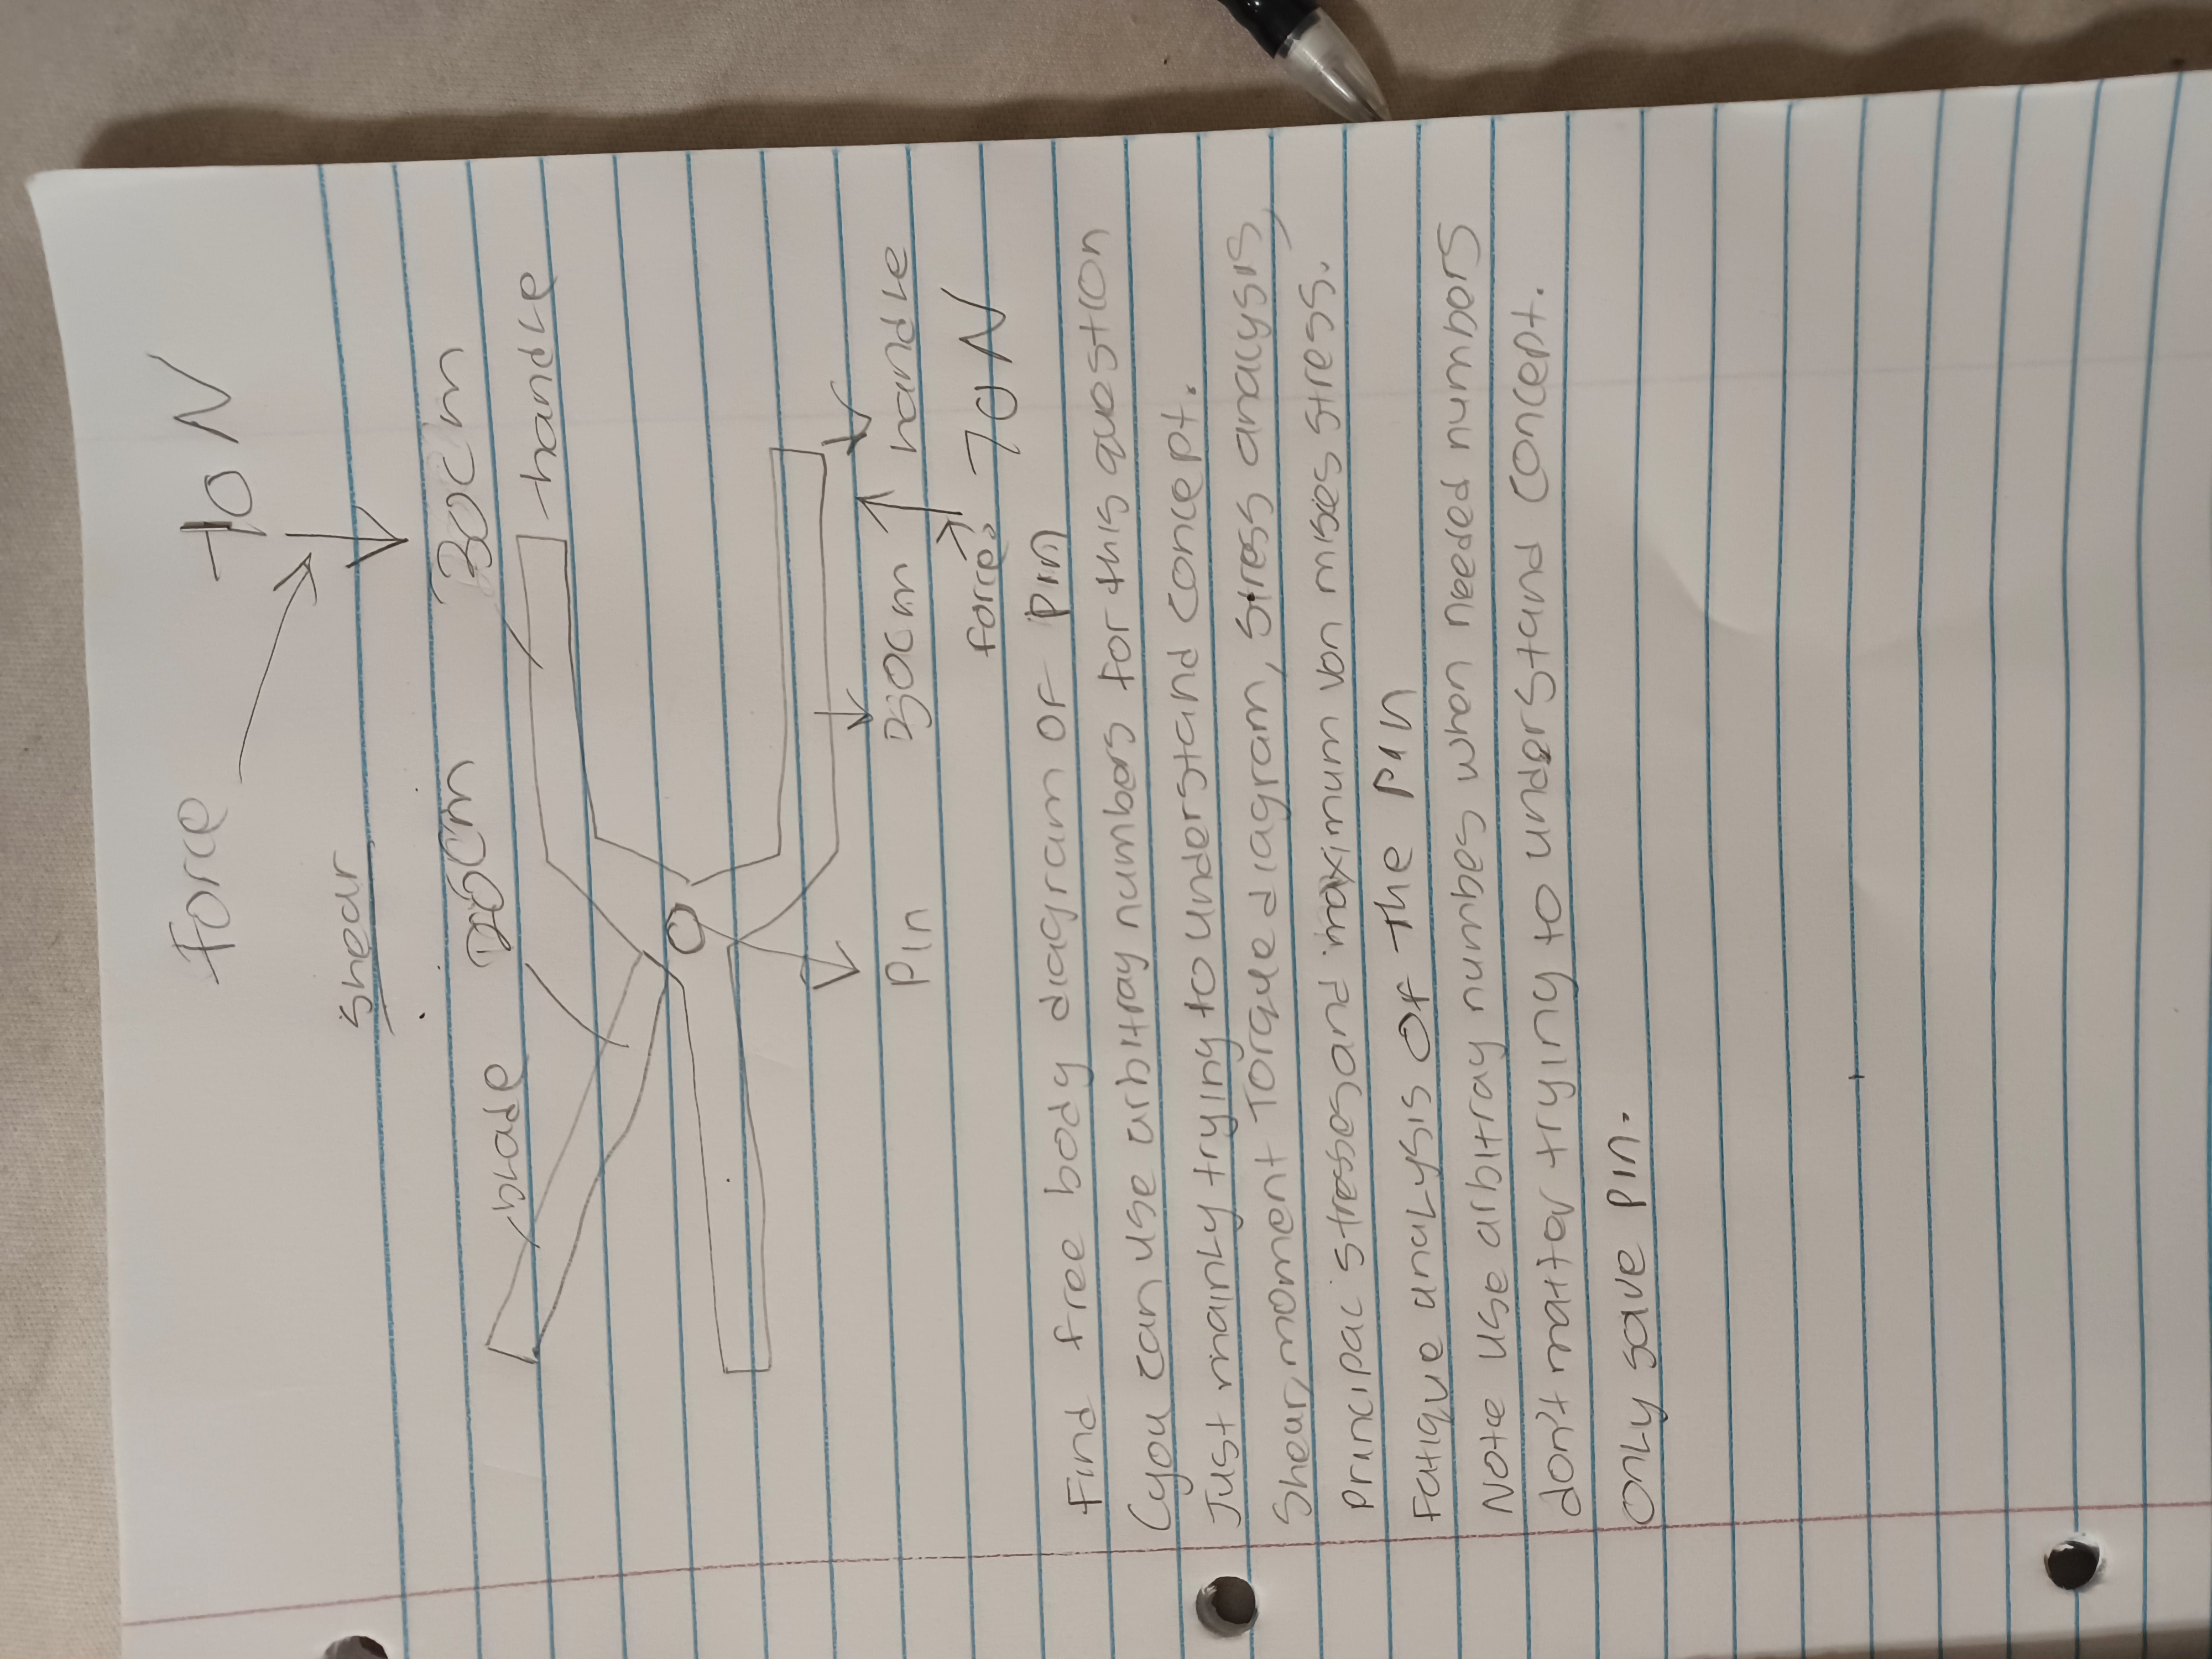 Force 70 N
shear
20cm 30cm
blade handle
Pin 30cm handle
force 70 N
Find free body diagram of pin
(you can use arbitray numbers for this question
Just mainly trying to understand concept.
Shear, moment Torque diagram, stress analysis,
principal stresses and maximum von mises stress.
Fatigue analysis of the pin
Note use arbitray numbes when needed numbers
don't matter trying to understand concept.
only save pin.